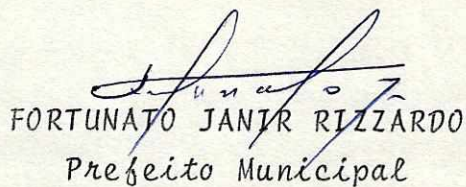 FORTUNATO JANIR RIZZARDO
Prefeito Municipal